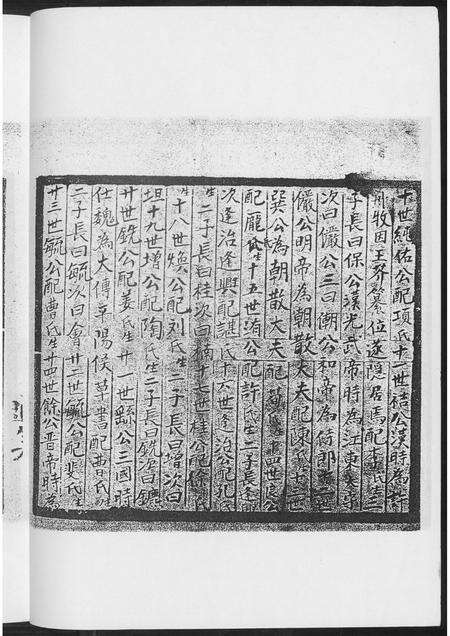 十世經佑公配項氏十一世聽公漢時為
州牧因王莽篡位遂隱居焉配李氏生三
子長曰保公漢光武帝時為江東
次曰儼公三曰潮公和帝為侍郎
儼公明帝為朝散大夫配陳氏十三世
巽公為朝散大夫配 世 公
配龐氏生十五世湇公配許氏生二子長逢
次逢治逢興配諶氏十六世逢治公配孔氏
生二子長曰桂次曰楠十七世桂公配徐氏
生十八世煥公配刘氏生二子長曰增次曰
坦十九世增公配陶氏生二子長曰銑次曰鑣
廿世銑公配姜氏生廿一世繇公三國時
仕魏為大傅平陽侯草書配曲氏生
二子長曰毓次曰會廿二世毓公配裴氏生
廿三世毓公配曹氏生廿四世餘公晋帝時